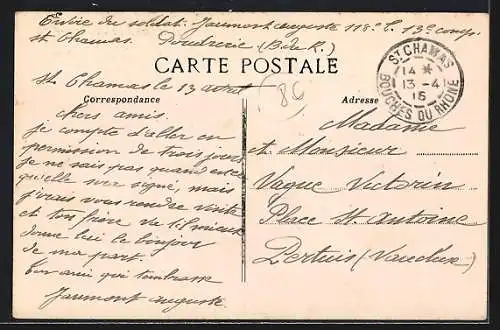 Envoi du soldat. Jaumont Auguste 118e t. 13e comp.
St Chamas. Poudrerie (B. du R.)
CARTE POSTALE
ST CHAMAS
14 *
13 - 4
15
BOUCHES DU RHONE
St Chamas le 13 avril
86
Correspondance
Adresse
chers amis.
je compte d'aller en
permission de trois jours
je ne sais pas quand encore
qu'elle sera signé, mais
j'irais vous rendre visite
et ton frère va-t-il mieux
donne lui le bonjour
de ma part.
ton ami qui t'embrasse
Jaumont Auguste
Madame
et Monsieur
Vague Victorin
Place St. Antoine
Pertuis (Vaucluse)